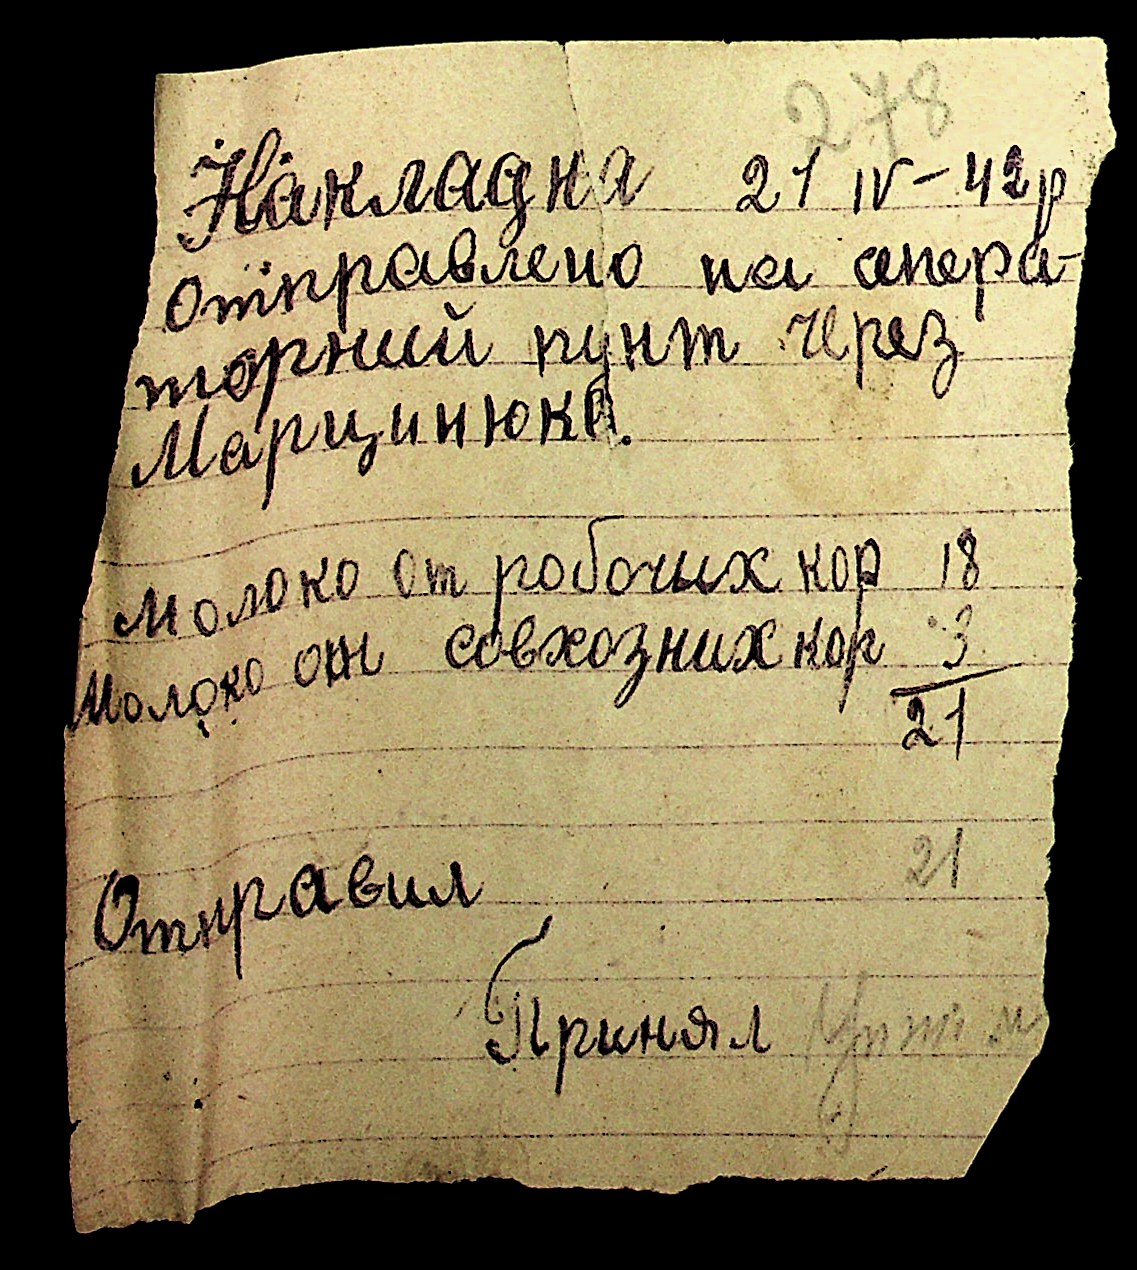 278
Накладна 21 IV-42р
отправлено на сепера-
торний пункт через
Марцинюка.
Молоко от робочих кор 18
Молоко от совхозних кор 3
21
21
Отправил
Принял